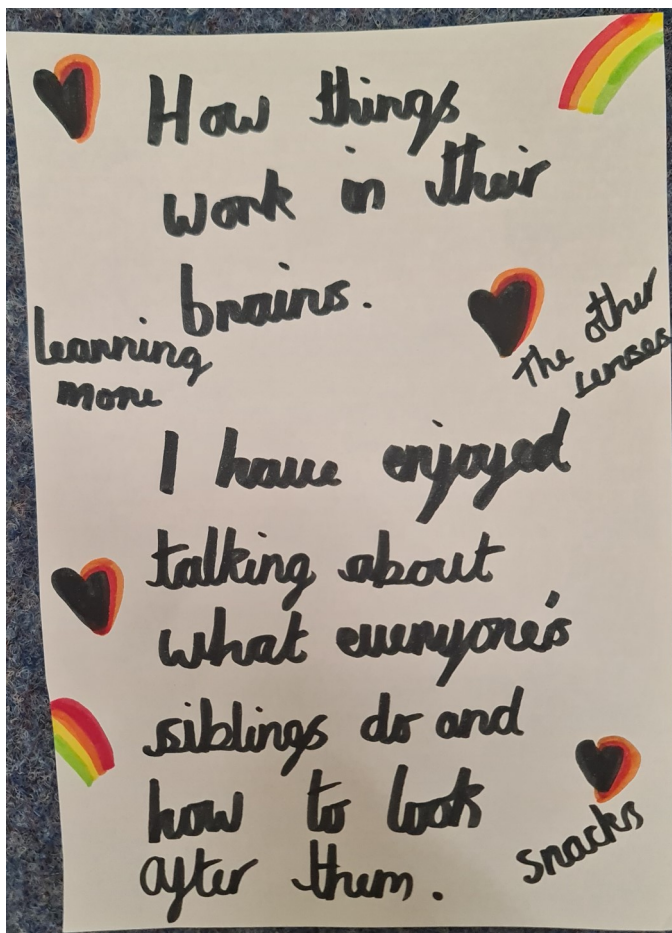 How things
work in their
brains.
learning
more
The other
senses
I have enjoyed
talking about
what everyone's
siblings do and
how to look
after them.
snacks